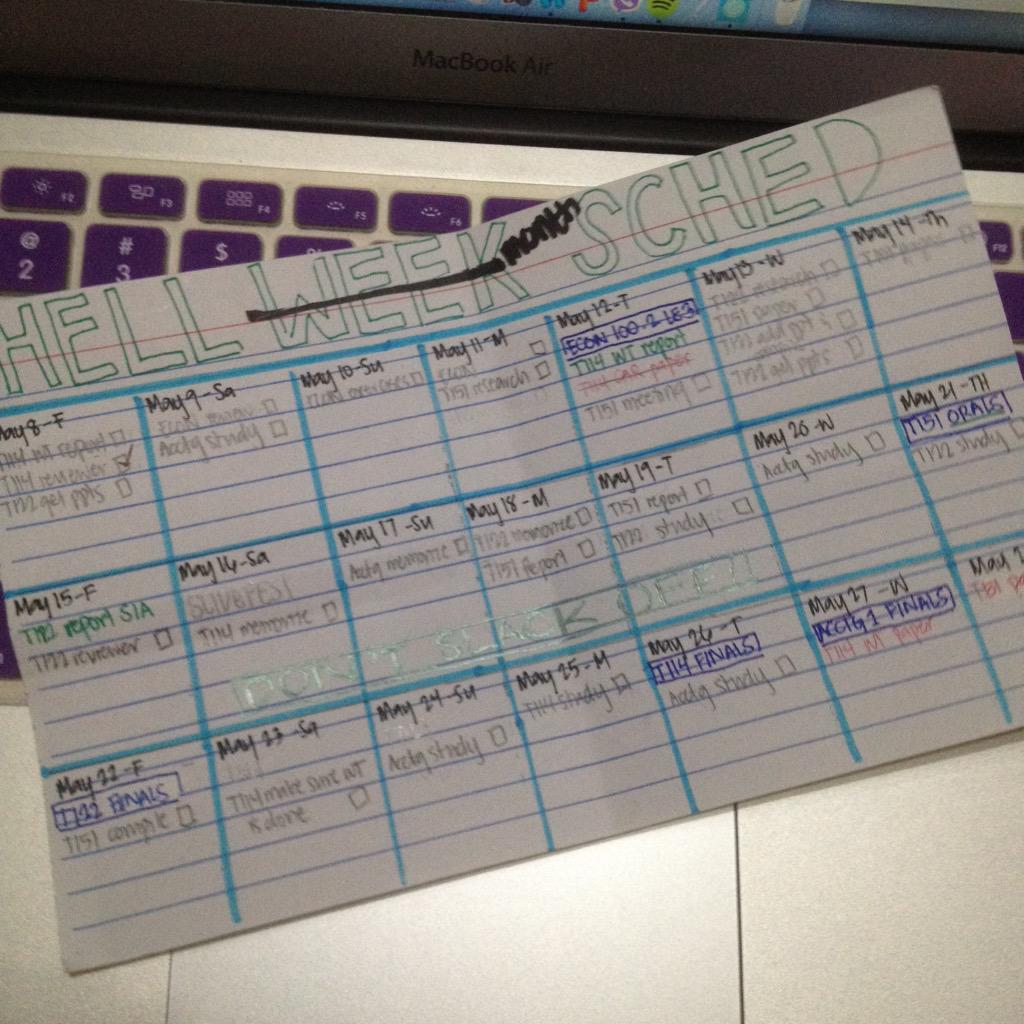 MacBook Air
F2
F3
F4
F5
F6
F12
@
2
#
3
$
HELL WEEK month SCHED
May 8-F
T114 WT report
T114 reviewer
T122 gel ppts
May 9-Sa
ECON review
Acctg study
May 10-Su
ECON exercises
May 11-M
ECON
T151 research
May 12-T
ECON 100-2 LE3
T114 WT report
T114 CAR paper
T151 meeting
May 13-W
T151 paper
May 14-Th
May 15-F
T122 report SIA
T122 reviewer
May 16-Sa
T114 memorize
May 17-Su
Acctg memorize
May 18-M
T122 memorize
T151 report
May 19-T
T151 report
T122 study
May 20-W
Acctg study
May 21-TH
T151 ORALS
T122 study
DON'T SLACK OFF EZ!
May 22-F
T122 FINALS
T151 compile
May 23-Sa
T114 make sure WT
is done
May 24-Su
Acctg study
May 25-M
T114 study
May 26-T
T114 FINALS
Acctg study
May 27-W
ACCTG 1 FINALS
T114 WT paper
May 2
T151